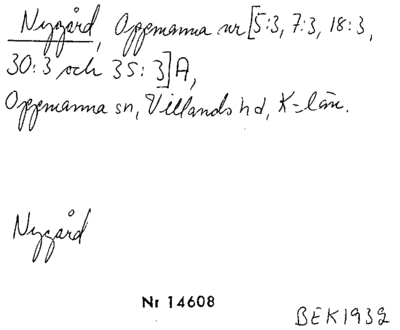 Nygård, Oppmanna nr [5:3, 7:3, 18:3,
30:3 och 35:3] A,
Oppmanna sn, Villands hd, K-län.
Nygård
Nr 14608
BEK1932